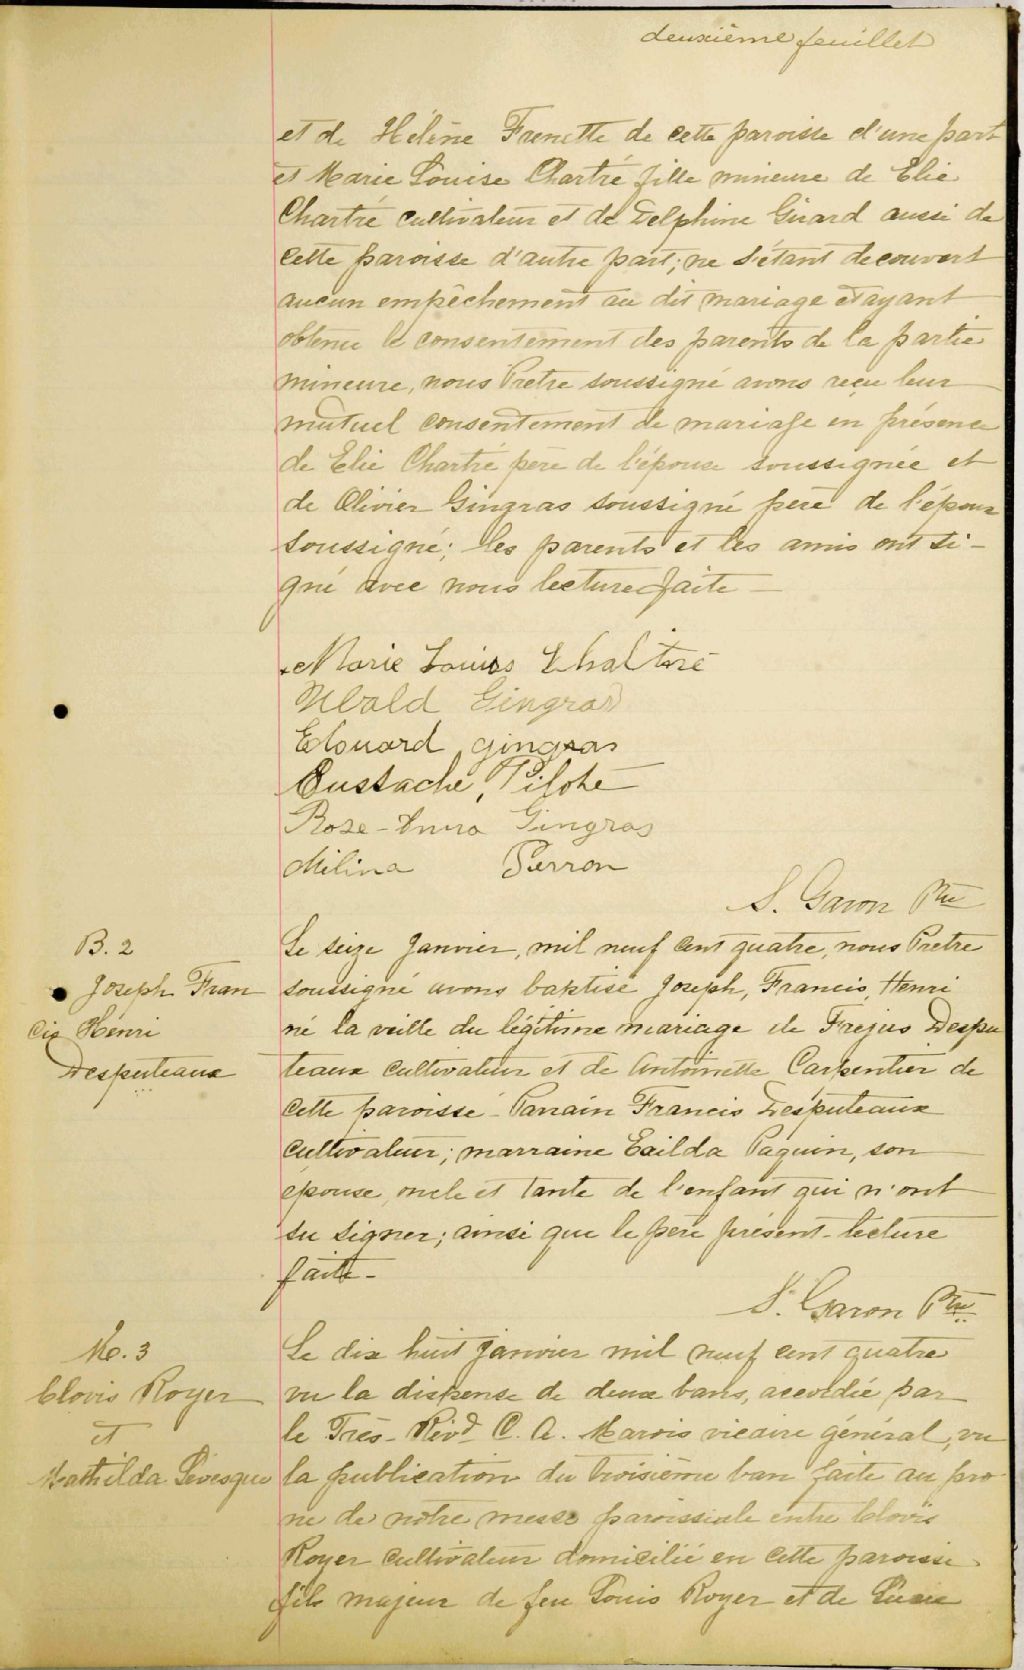 deuxième feuillet
et de Hélène Frenette de cette paroisse d'une part
et Marie Louise Chartré fille mineure de Elie
Chartré cultivateur et de Delphine Girard aussi de
cette paroisse d'autre part; ne s'étant decouvert
aucun empêchement au dit mariage et ayant
obtenu le consentement des parents de la partie
mineure, nous Pretre soussigné avons reçu leur
mutuel consentement de mariage en présence
de Elie Chartré père de l'épouse soussignée et
de Olivier Gingras soussigné père de l'époux
soussigné; les parents et les amis ont si-
gné avec nous lecture faite —
Marie Louise Chaltré
Ubald Gingras
Edouard gingras
Eustache Piloté
Rose-Anna Gingras
Milina Perron
S. Garon Ptre
B. 2
Joseph Fran
cis Henri
Desputeaux
Le seize Janvier, mil neuf cent quatre, nous Pretre
soussigné avons baptisé Joseph, Francis, Henri
né la veille du légitime mariage de Frejus Despu
teaux cultivateur et de Antoinette Carpentier de
cette paroisse - Parrain Francis Desputeaux
cultivateur; marraine Exilda Paquin, son
épouse, oncle et tante de l'enfant qui n'ont
su signer; ainsi que le père présent - lecture
faite -
S. Garon Ptre
M. 3
Clovis Royer
et
Mathilda Lévesque
Le dix huit janvier mil neuf cent quatre
vu la dispense de deux bans, accordée par
le Très-Révd C. A. Marois vicaire général, vu
la publication du troisième ban faite au pro
ne de notre messe paroissiale entre Clovis
Royer cultivateur domicilié en cette paroisse
fils majeur de feu Louis Royer et de